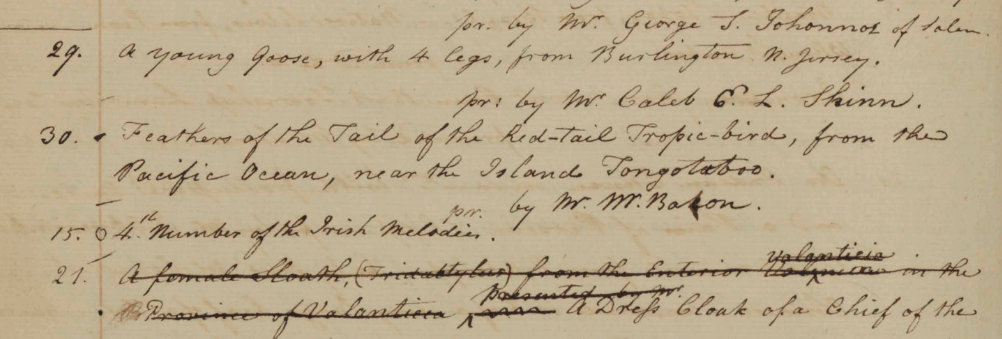 pr. by Mr. George S. Johonnot of Salem.
29. A young Goose, with 4 legs, from Burlington N. Jersey.
pr: by Mr. Caleb E. L. Shinn.
30. Feathers of the Tail of the Red-tail Tropic-bird, from the
Pacific Ocean, near the Island Tongotaboo.
pr. by Mr. Wm. Bacon.
15. 4th Number of the Irish Melodies.
21. A female Sloath, (Tridactylus) from the Enterior Valanticia in the
Province of Valanticea Presented by Mr. A Dress Cloak of a Chief of the